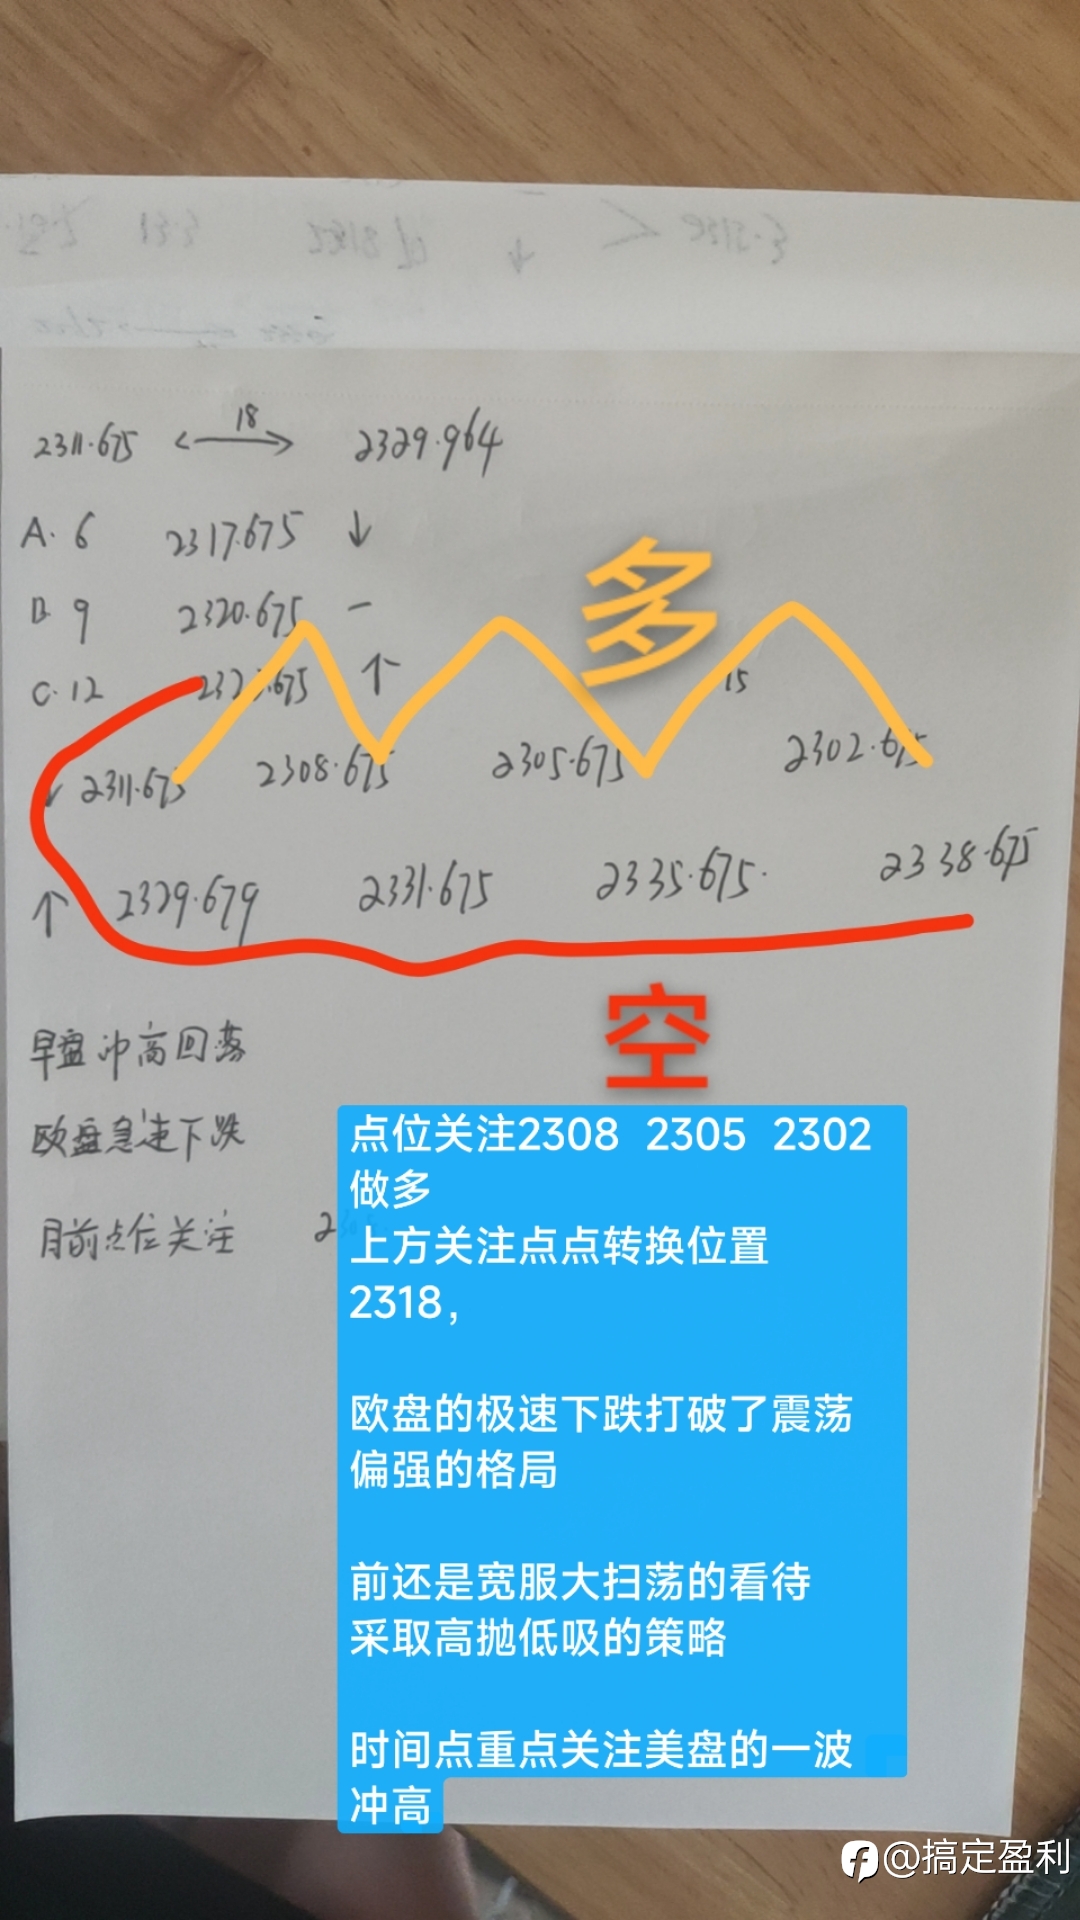 2311.675 <—> 2329.964
18
A. 6 2317.675 ↓
B. 9 2320.675 —
C. 12 ↑
15
↓ 2311.675 2308.675 2305.675 2302.675
↑ 2329.679 2331.675 2335.675. 2338.675
多
空
早盘冲高回落
欧盘急速下跌
目前点位关注
点位关注2308 2305 2302
做多
上方关注点点转换位置
2318，
欧盘的极速下跌打破了震荡
偏强的格局
前还是宽服大扫荡的看待
采取高抛低吸的策略
时间点重点关注美盘的一波
冲高
@搞定盈利